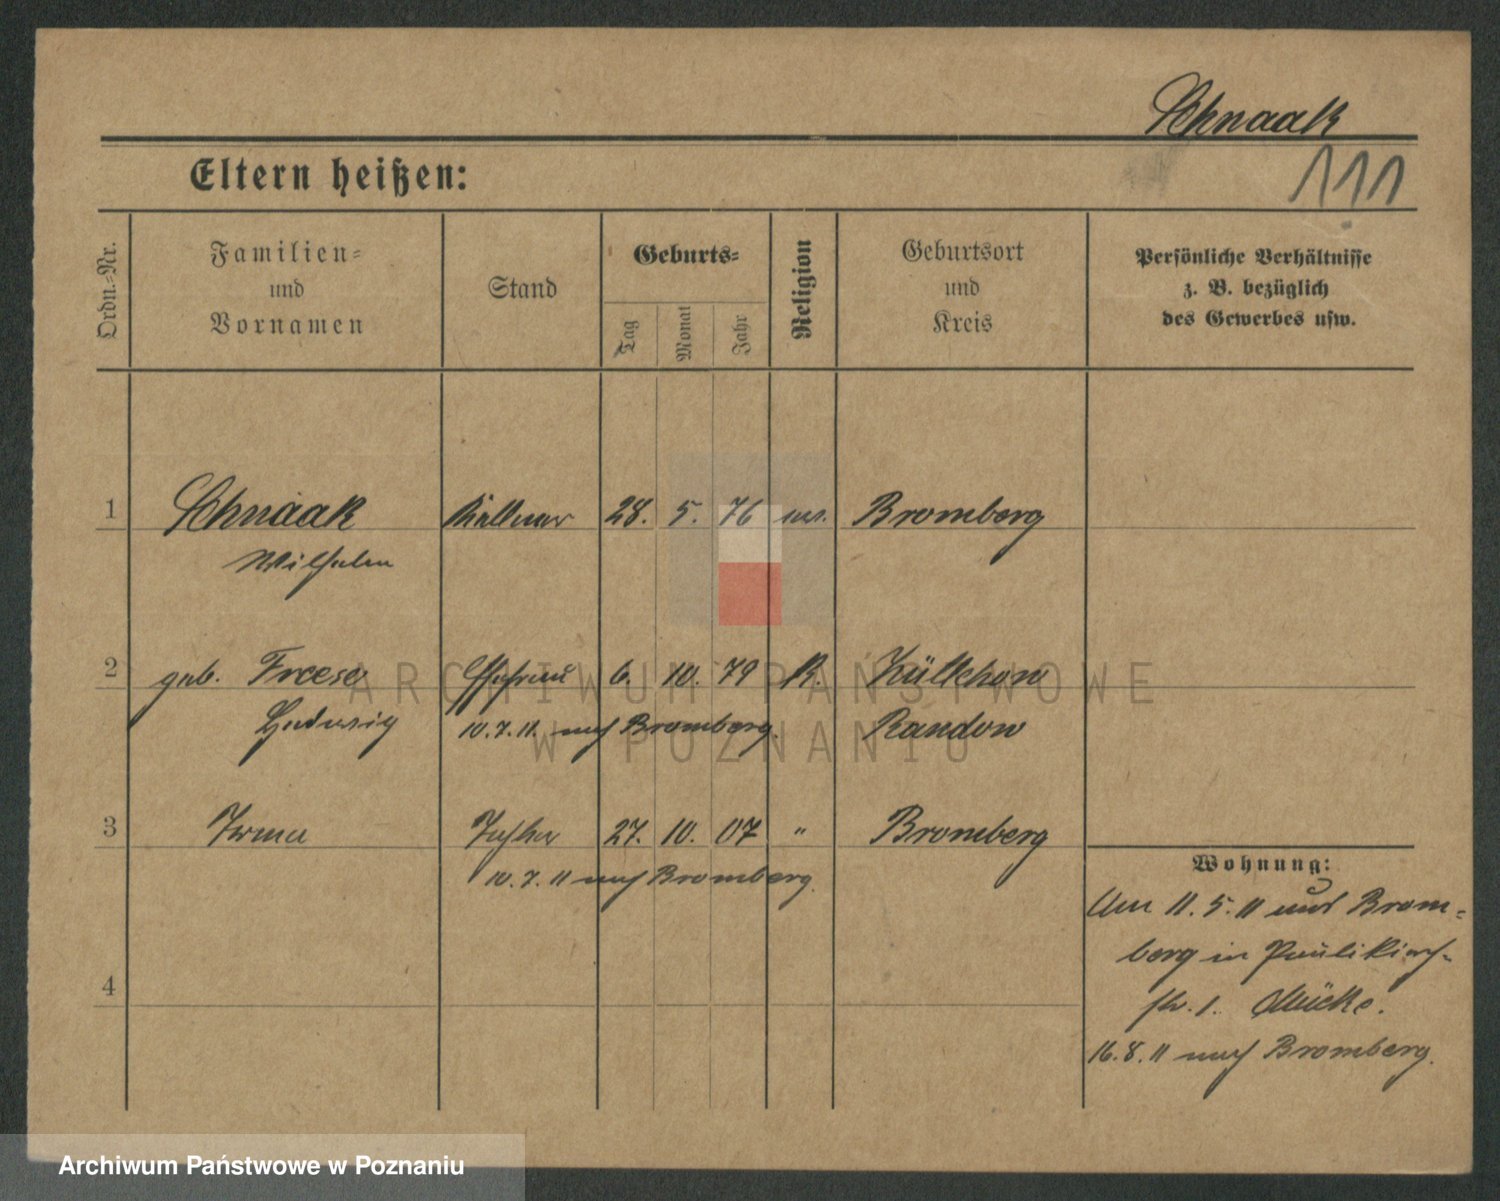 Schnaak
Eltern heißen:
111
Ordn.-Nr.
Familien-
und
Vornamen
Stand
Geburts-
Tag
Monat
Jahr
Religion
Geburtsort
und
Kreis
Persönliche Verhältnisse
z. B. bezüglich
des Gewerbes usw.
1 Schnaak Kellner 28. 5. 76 Bromberg
Wilhelm
2 geb. Freese Ehefrau 6. 10. 79 K.
Hedwig 10.7.11 nach Bromberg. Randow
3 Irma Tochter 27. 10. 07 " Bromberg
10.7.11 nach Bromberg.
Wohnung:
Am 11.5.11 aus Brom-
berg in Paulikirch-
str. 1. Mücke.
4
16.8.11 nach Bromberg.
ARCHIWUM PAŃSTWOWE
W POZNANIU
Archiwum Państwowe w Poznaniu